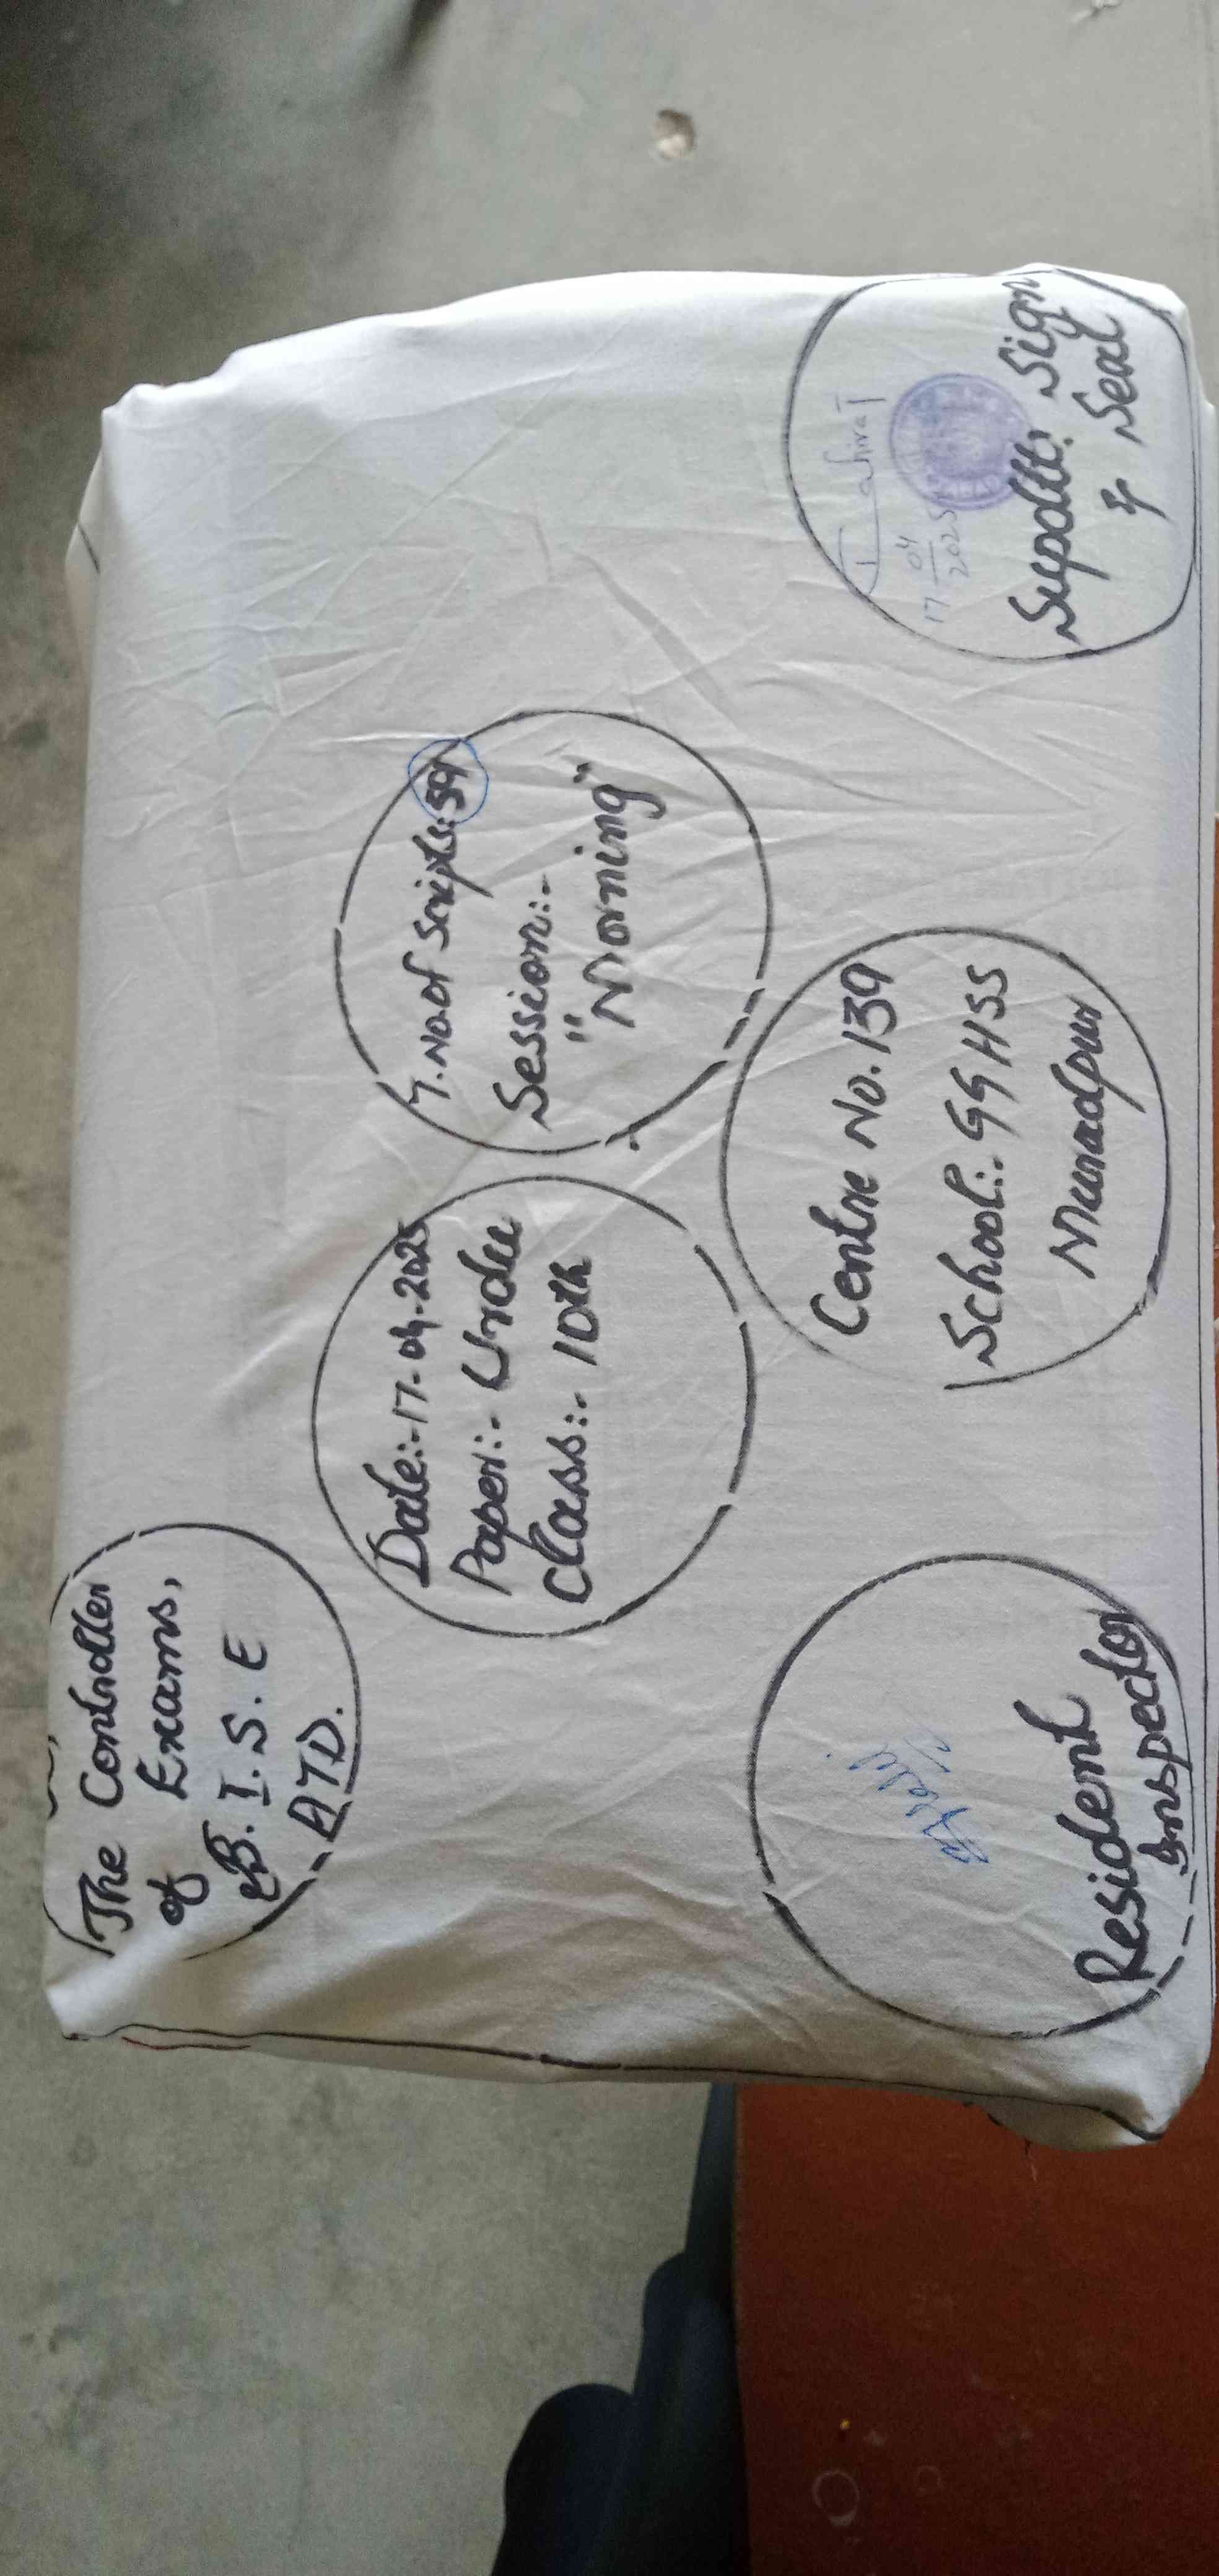 The Controller
of Exams,
B.I.S.E
ATD.
Date:-17-04-2025
Paper:- Urdu
Class:- 10th
T.No.of Scripts:59
Session:-
"Morning"
Centre No.139
School:- GGHSS
Muradpur
Resident
Inspector
17 04 2025
Supdtt: Sign
& Seal